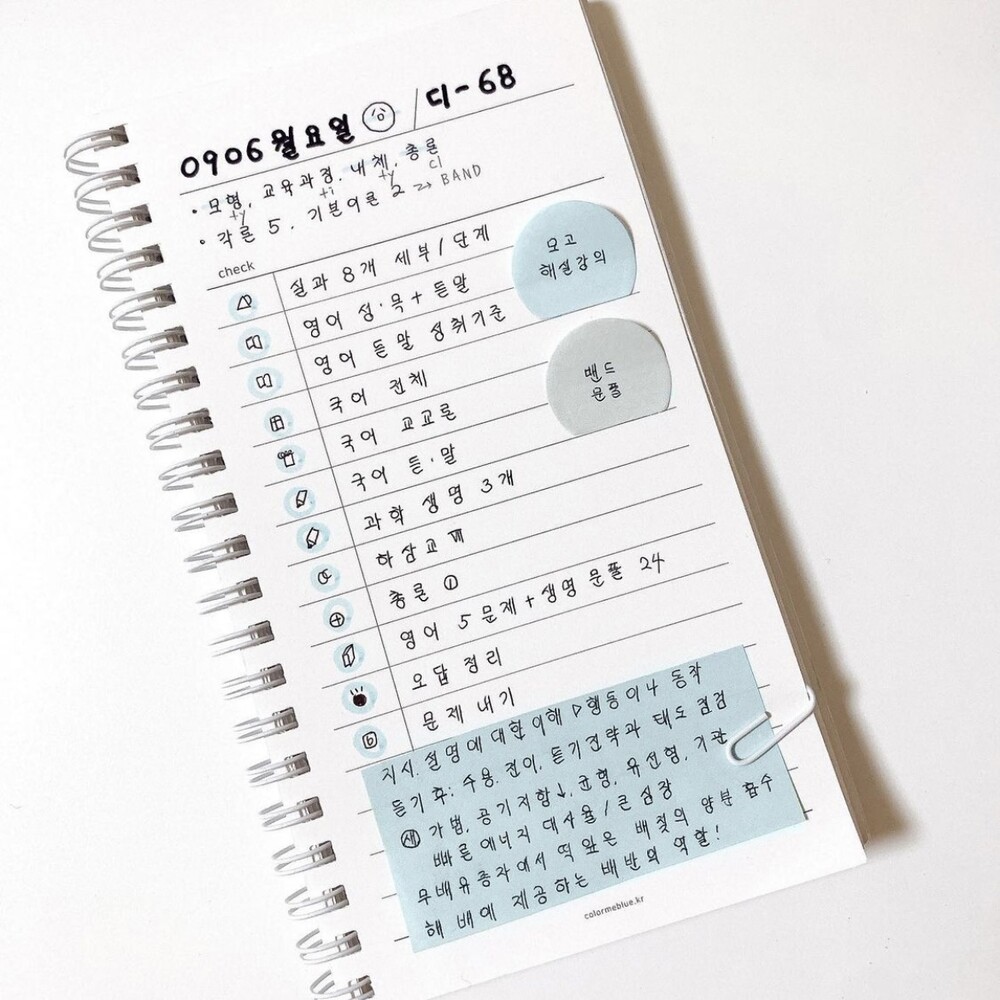 0906 월요일 / 디-68
• 모형, 교육과정. 내체, 총론
+y +i +y cl
• 각론 5. 기본이론 2 → BAND
check
실과 8개 세부/단계
영어 성·목+듣말
영어 듣말 성취기준
국어 전체
국어 교교론
국어 듣·말
과학 생명 3개
하상교 Ⅶ
총론 ①
영어 5문제+생명 문풀 24
오답 정리
문제 내기
모고
해설강의
밴드
문풀
지시. 설명에 대한 이해 ▷행동이나 동작
듣기 후: 수용. 전이, 듣기전략과 태도 점검
새 가볍, 공기저항↓, 균형, 유선형, 기관
빠른 에너지 대사율/큰 심장
무배유종자에서 떡잎은 배젖의 양분 흡수
해 배에 제공하는 배반의 역할!
colormeblue.kr